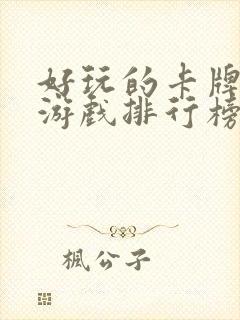 好玩的卡牌
游戏排行榜
楓公子